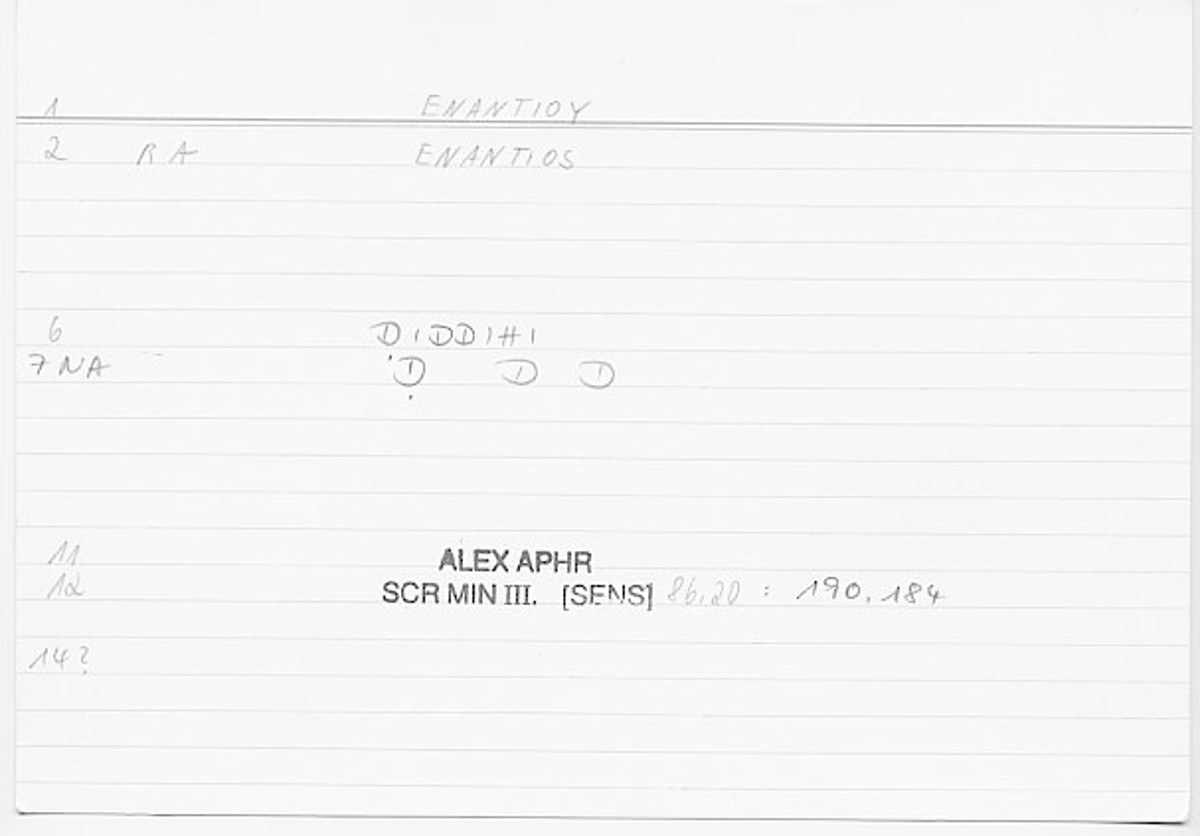 1 ENANTIOY
2 RA ENANTIOS
6 DIDDIHI
7 NA D D D
11 ALEX APHR
12 SCR MIN III. [SENS] 86,20 : 190.184
14?